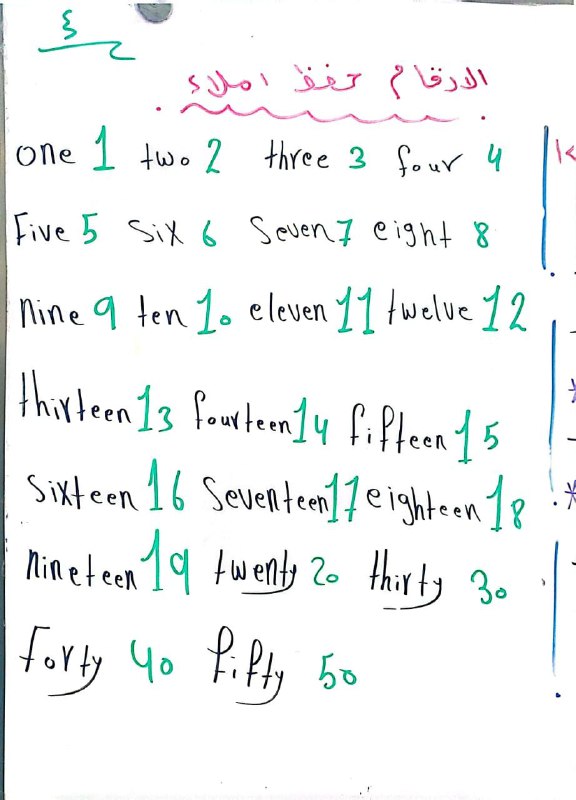 ٤
الارقام حفظ املاء
one 1 two 2 three 3 four 4
Five 5 six 6 Seven 7 eight 8
nine 9 ten 10 eleven 11 twelve 12
thirteen 13 fourteen 14 fifteen 15
Sixteen 16 Seventeen 17 eighteen 18
nineteen 19 twenty 20 thirty 30
forty 40 fifty 50